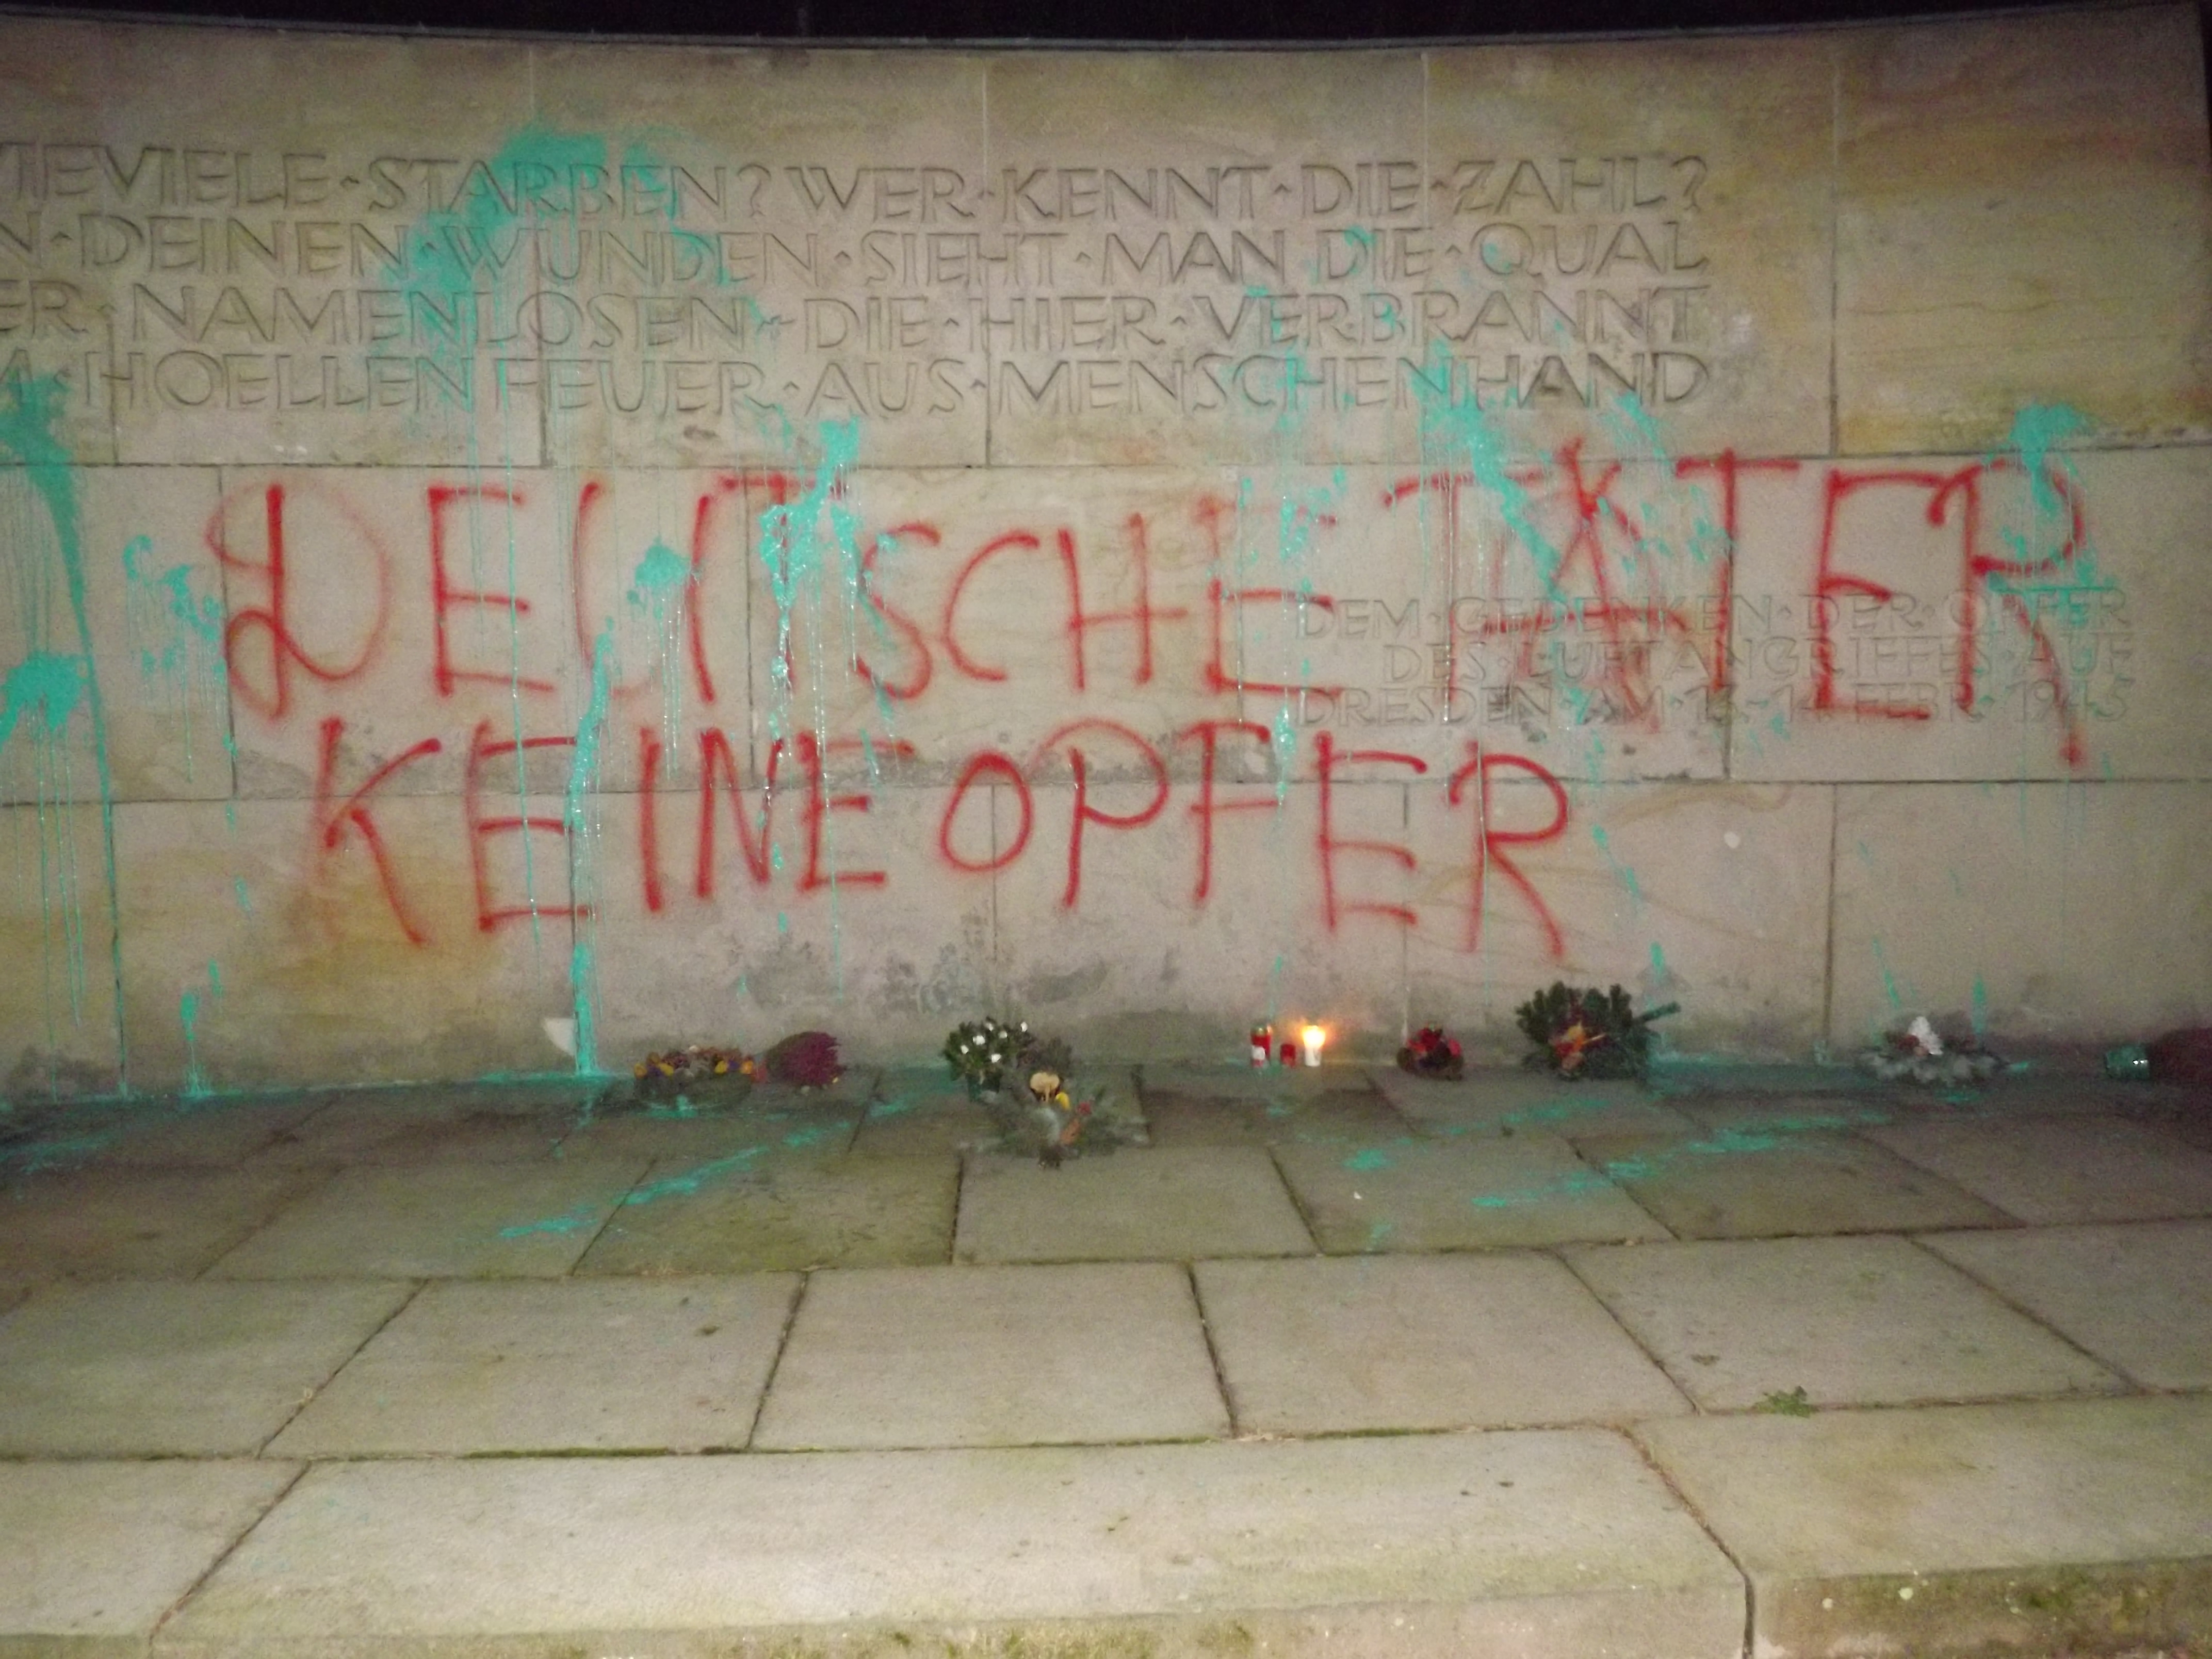 IEVIELE STARBEN? WER KENNT DIE ZAHL?
N DEINEN WUNDEN SIEHT MAN DIE QUAL
ER NAMENLOSEN DIE HIER VERBRANNT
M HOELLENFEUER AUS MENSCHENHAND
DEUTSCHE TÄTER
DEM GEDENKEN DER OPFER
DES LUFTANGRIFFES AUF
DRESDEN AM 13. 14. FEBR. 1945
KEINE OPFER